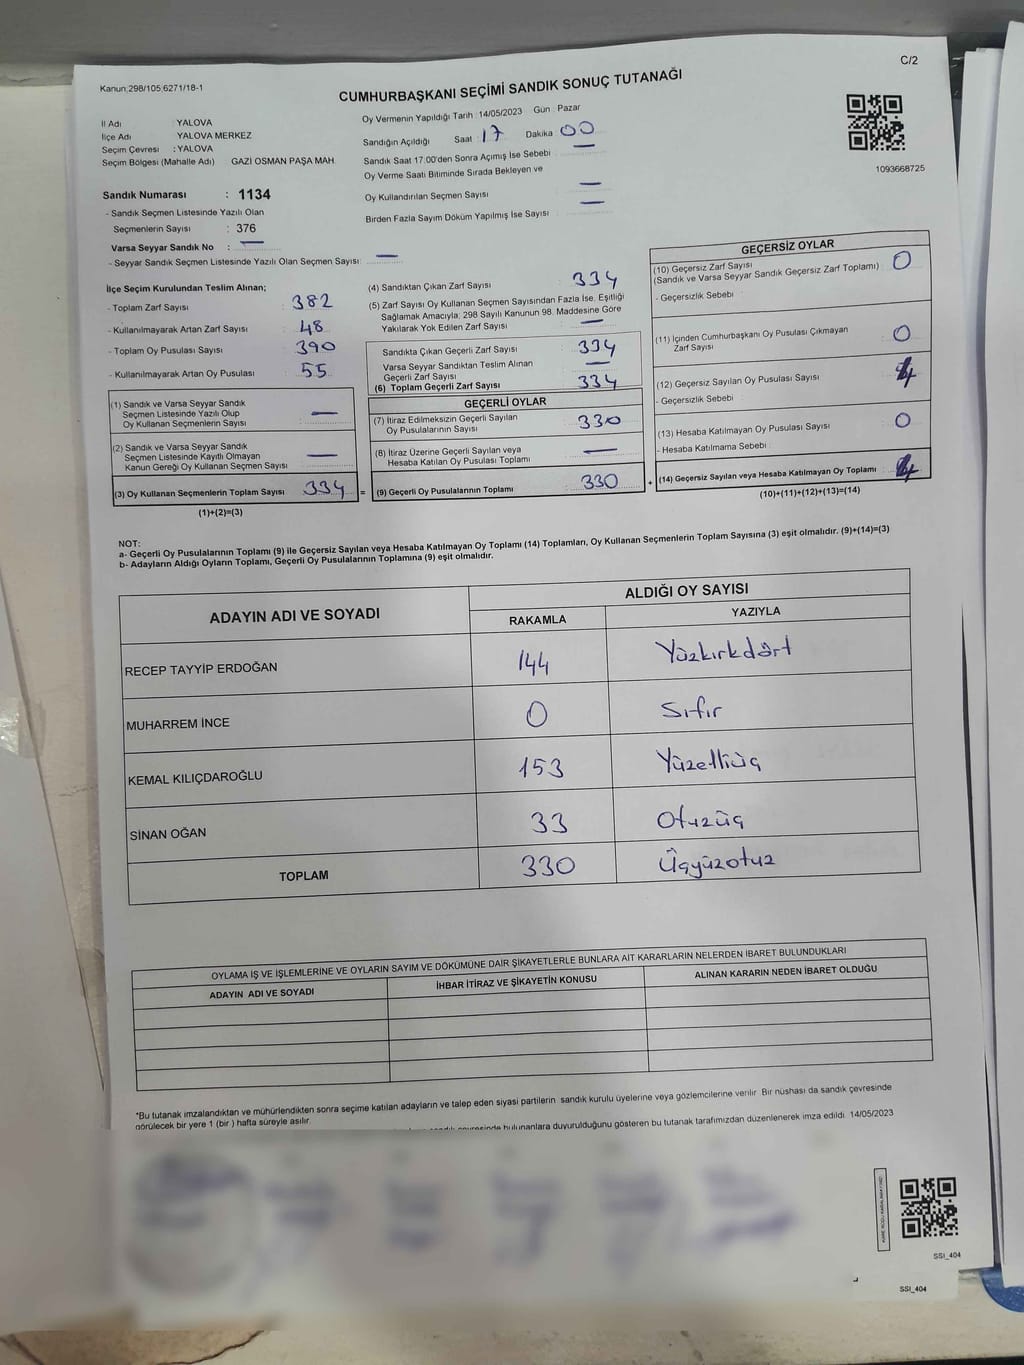 C/2
Kanun:298/105;6271/18-1
CUMHURBAŞKANI SEÇİMİ SANDIK SONUÇ TUTANAĞI
İl Adı : YALOVA
İlçe Adı YALOVA MERKEZ
Seçim Çevresi : YALOVA
Seçim Bölgesi (Mahalle Adı) GAZİ OSMAN PAŞA MAH.
Oy Vermenin Yapıldığı Tarih : 14/05/2023 Gün : Pazar
Sandığın Açıldığı Saat : 17 Dakika : 00
Sandık Saat 17:00'den Sonra Açımış İse Sebebi : —
Oy Verme Saati Bitiminde Sırada Bekleyen ve
Oy Kullandırılan Seçmen Sayısı : —
Birden Fazla Sayım Döküm Yapılmış İse Sayısı : —
1093668725
Sandık Numarası : 1134
- Sandık Seçmen Listesinde Yazılı Olan
Seçmenlerin Sayısı : 376
Varsa Seyyar Sandık No : —
- Seyyar Sandık Seçmen Listesinde Yazılı Olan Seçmen Sayısı: —
İlçe Seçim Kurulundan Teslim Alınan;
- Toplam Zarf Sayısı : 382
- Kullanılmayarak Artan Zarf Sayısı : 48
- Toplam Oy Pusulası Sayısı : 390
- Kullanılmayarak Artan Oy Pusulası : 55
(1) Sandık ve Varsa Seyyar Sandık
Seçmen Listesinde Yazılı Olup
Oy Kullanan Seçmenlerin Sayısı : —
(2) Sandık ve Varsa Seyyar Sandık
Seçmen Listesinde Kayıtlı Olmayan
Kanun Gereği Oy Kullanan Seçmen Sayısı : —
(3) Oy Kullanan Seçmenlerin Toplam Sayısı : 334 =
(1)+(2)=(3)
(4) Sandıktan Çıkan Zarf Sayısı : 334
(5) Zarf Sayısı Oy Kullanan Seçmen Sayısından Fazla İse, Eşitliği
Sağlamak Amacıyla; 298 Sayılı Kanunun 98. Maddesine Göre
Yakılarak Yok Edilen Zarf Sayısı : —
Sandıkta Çıkan Geçerli Zarf Sayısı : 334
Varsa Seyyar Sandıktan Teslim Alınan
Geçerli Zarf Sayısı : —
(6) Toplam Geçerli Zarf Sayısı : 334
GEÇERLİ OYLAR
(7) İtiraz Edilmeksizin Geçerli Sayılan
Oy Pusulalarının Sayısı : 330
(8) İtiraz Üzerine Geçerli Sayılan veya
Hesaba Katılan Oy Pusulası Toplamı : —
(9) Geçerli Oy Pusulalarının Toplamı : 330 +
GEÇERSİZ OYLAR
(10) Geçersiz Zarf Sayısı
(Sandık ve Varsa Seyyar Sandık Geçersiz Zarf Toplamı) : 0
- Geçersizlik Sebebi :
(11) İçinden Cumhurbaşkanı Oy Pusulası Çıkmayan
Zarf Sayısı : 0
(12) Geçersiz Sayılan Oy Pusulası Sayısı : 4
- Geçersizlik Sebebi :
(13) Hesaba Katılmayan Oy Pusulası Sayısı : 0
- Hesaba Katılmama Sebebi :
(14) Geçersiz Sayılan veya Hesaba Katılmayan Oy Toplamı : 4
(10)+(11)+(12)+(13)=(14)
NOT:
a- Geçerli Oy Pusulalarının Toplamı (9) ile Geçersiz Sayılan veya Hesaba Katılmayan Oy Toplamı (14) Toplamları, Oy Kullanan Seçmenlerin Toplam Sayısına (3) eşit olmalıdır. (9)+(14)=(3)
b- Adayların Aldığı Oyların Toplamı, Geçerli Oy Pusulalarının Toplamına (9) eşit olmalıdır.
ADAYIN ADI VE SOYADI ALDIĞI OY SAYISI
RAKAMLA YAZIYLA
RECEP TAYYİP ERDOĞAN 144 Yüzkırkdört
MUHARREM İNCE 0 Sıfır
KEMAL KILIÇDAROĞLU 153 Yüzelliüç
SİNAN OĞAN 33 Otuzüç
TOPLAM 330 Üçyüzotuz
OYLAMA İŞ VE İŞLEMLERİNE VE OYLARIN SAYIM VE DÖKÜMÜNE DAİR ŞİKAYETLERLE BUNLARA AİT KARARLARIN NELERDEN İBARET BULUNDUKLARI
ADAYIN ADI VE SOYADI İHBAR İTİRAZ VE ŞİKAYETİN KONUSU ALINAN KARARIN NEDEN İBARET OLDUĞU
*Bu tutanak imzalandıktan ve mühürlendikten sonra seçime katılan adayların ve talep eden siyasi partilerin sandık kurulu üyelerine veya gözlemcilerine verilir. Bir nüshası da sandık çevresinde
görülecek bir yere 1 (bir ) hafta süreyle asılır.
bulunanlara duyurulduğunu gösteren bu tutanak tarafımızdan düzenlenerek imza edildi. 14/05/2023
SSI_404
SSI_404